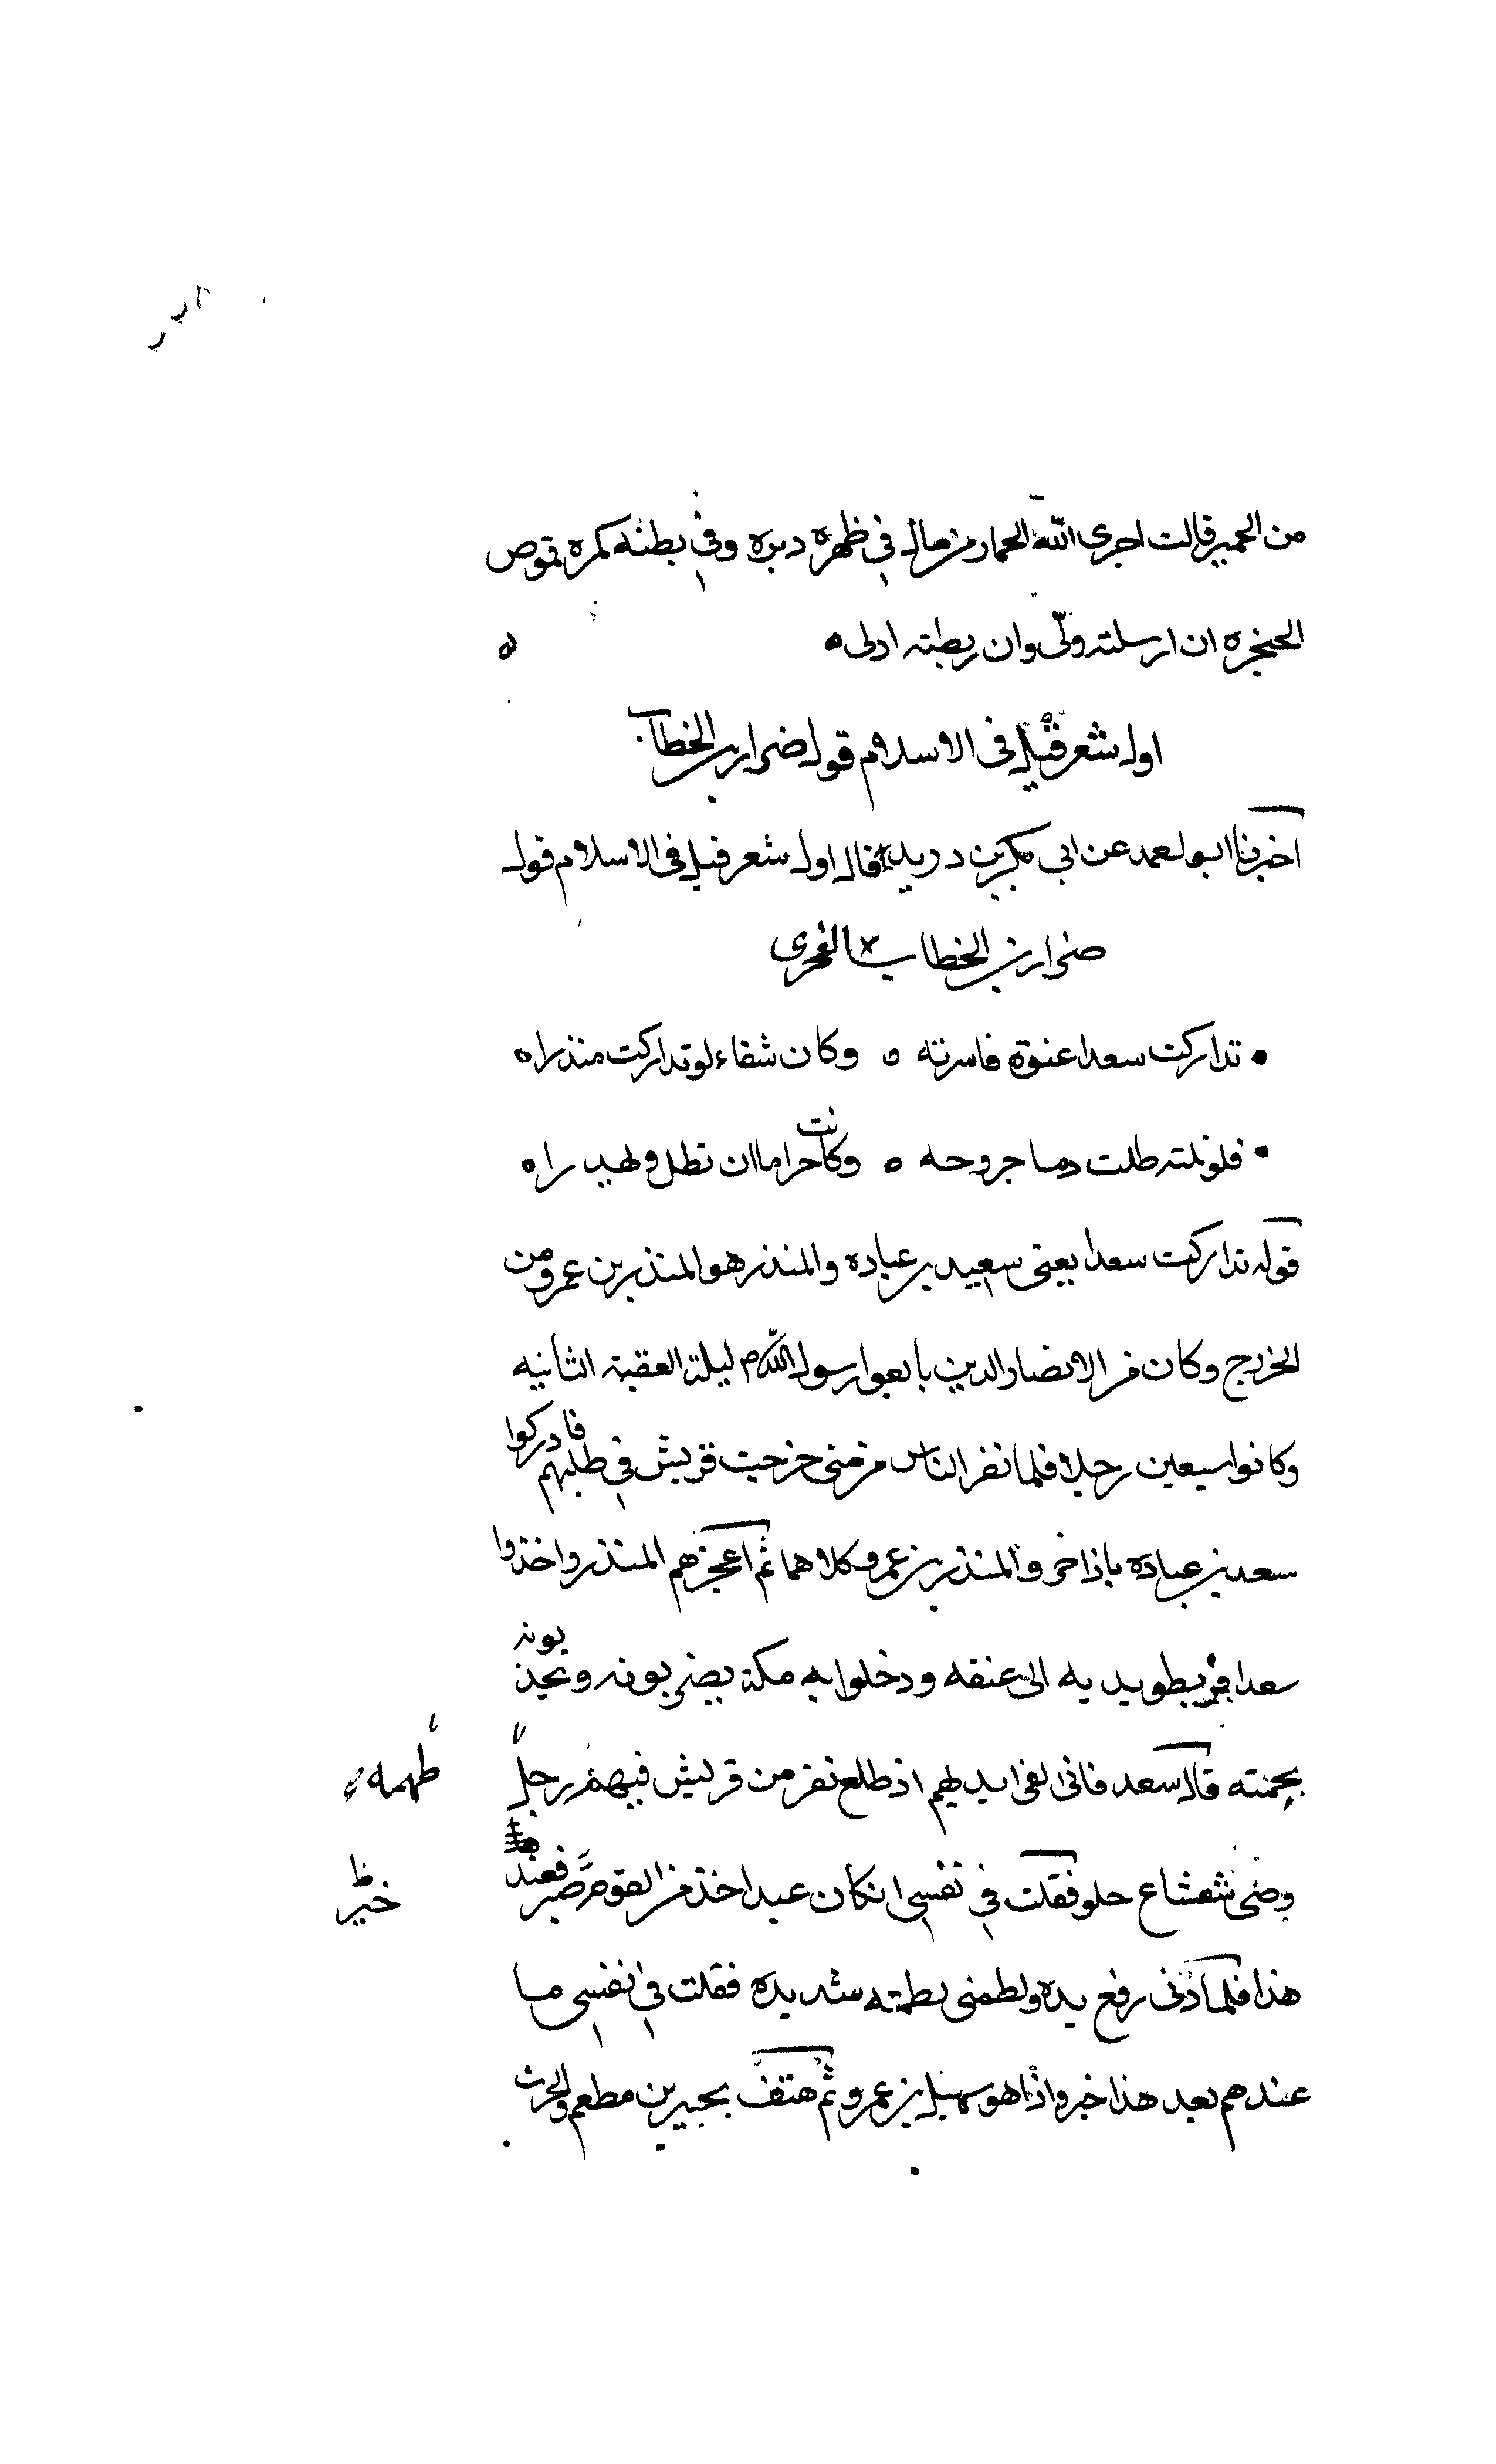 من الحمير قالت اجرى الله الحمار من مال في ظهره دبره وفي بطنه كمره قموص
الحنجره ان ارسلته ولّى وان ربطته ادلى ه ه
اول شعر قيل في الاسلام قول ضرار بن الخطاب
اخبرنا ابو احمد عن ابي بكر بن دريد قال اول شعر قيل في الاسلام قول
ضرار بن الخطاب الفهرى
• تداركت سعدا عنوة فاسرته ه وكان شفاء لو تداركت منذرا ه
• فلو نلته طلت دما جروحه ه وكانت حراما ان تطل ولهدرا ه
قوله تداركت سعدا يعني سعيد بن عباده والمنذر هو المنذر بن عمرو من
الخزرج وكان من الانصار الدين بايعوا رسول الله م ليلة العقبة الثانيه
وكانوا سبعين رجلا فلما نفر الناس من منى خرجت قريش في طلبهم فادركوا
سعد بن عباده باذاخر والمنذر بن عمرو كلاهما ثم اعجزهم المنذر واخذوا
سعدا فربطو يديه الى عنقه ودخلوا به مكة يضربونه ويجذبونه
بجمته قال سعد فاني لفي ايديهم اذ طلع نفر من قريش فيهم رجل
وضى شعشاع حلو فقلت في نفسي ان كان عند احد من القوم خير فعند
خير
هذا فلما دنى رفع يده ولطمني لطمته شديده فقلت في نفسي ما
عندهم بعد هذا خير واذا هو سهيل بن عمرو ثم هتف بجبير بن مطعم والحرث